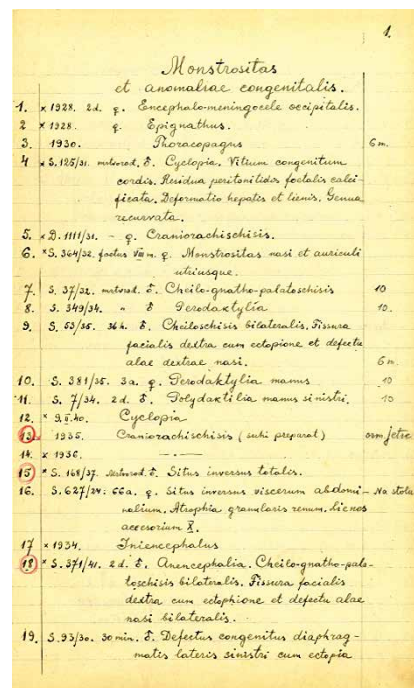 1.
Monstrositas
et anomaliae congenitalis.
1. × 1928. 2d. ♀. Encephalo-meningocele occipitalis.
2 × 1928. ♀. Epignathus.
3. 1930. Thoracopagus 6 m.
4 × S. 125/31. mrtvorod. ♂. Cyclopia. Vitium congenitum
cordis. Residua peritonitidis foetalis calci-
ficata. Deformatio hepatis et lienis. Genua
recurvata.
5. × D. 1111/31. – ♀. Craniorachischisis.
6. × S. 364/32. foetus VIII m. ♀. Monstrositas nasi et auriculi
utriusque.
7. S. 37/32. mrtvorod. ♂. Cheilo-gnatho-palatoschisis 10
8. S. 349/34. " ♂ Perodaktylia 10.
9. S. 53/35. 36 h. ♂. Cheiloschisis bilateralis. Fissura
facialis dextra cum ectopione et defectu
alae dextrae nasi. 6 m.
10. S. 381/35. 3a. ♀. Perodaktylia manus 10
11. S. 7/34. 2 d. ♂. Polydaktilia manus sinistri. 10
12. × 9. II. 40. Cyclopia
13. 1935. Craniorachischisis (suhi preparat)
14. × 1936. —·—
15 × S. 168/37. Mrtvorod. ♂. Situs inversus totalis.
16. S. 627/24: 66a. ♀. Situs inversus viscerum abdomi- Na stolu
nalium. Atrophia granularis renum. Lienes
accesorium X.
17 × 1934. Iniencephalus
18 × S. 371/41. 2 d. ♂. Anencephalia. Cheilo-gnatho-pala-
toschisis bilateralis. Fissura facialis
dextra cum ectophione et defectu alae
nasi bilateralis.
19. S. 93/30. 30 min. ♂. Defectus congenitus diaphrag-
matis lateris sinistri cum ectopia